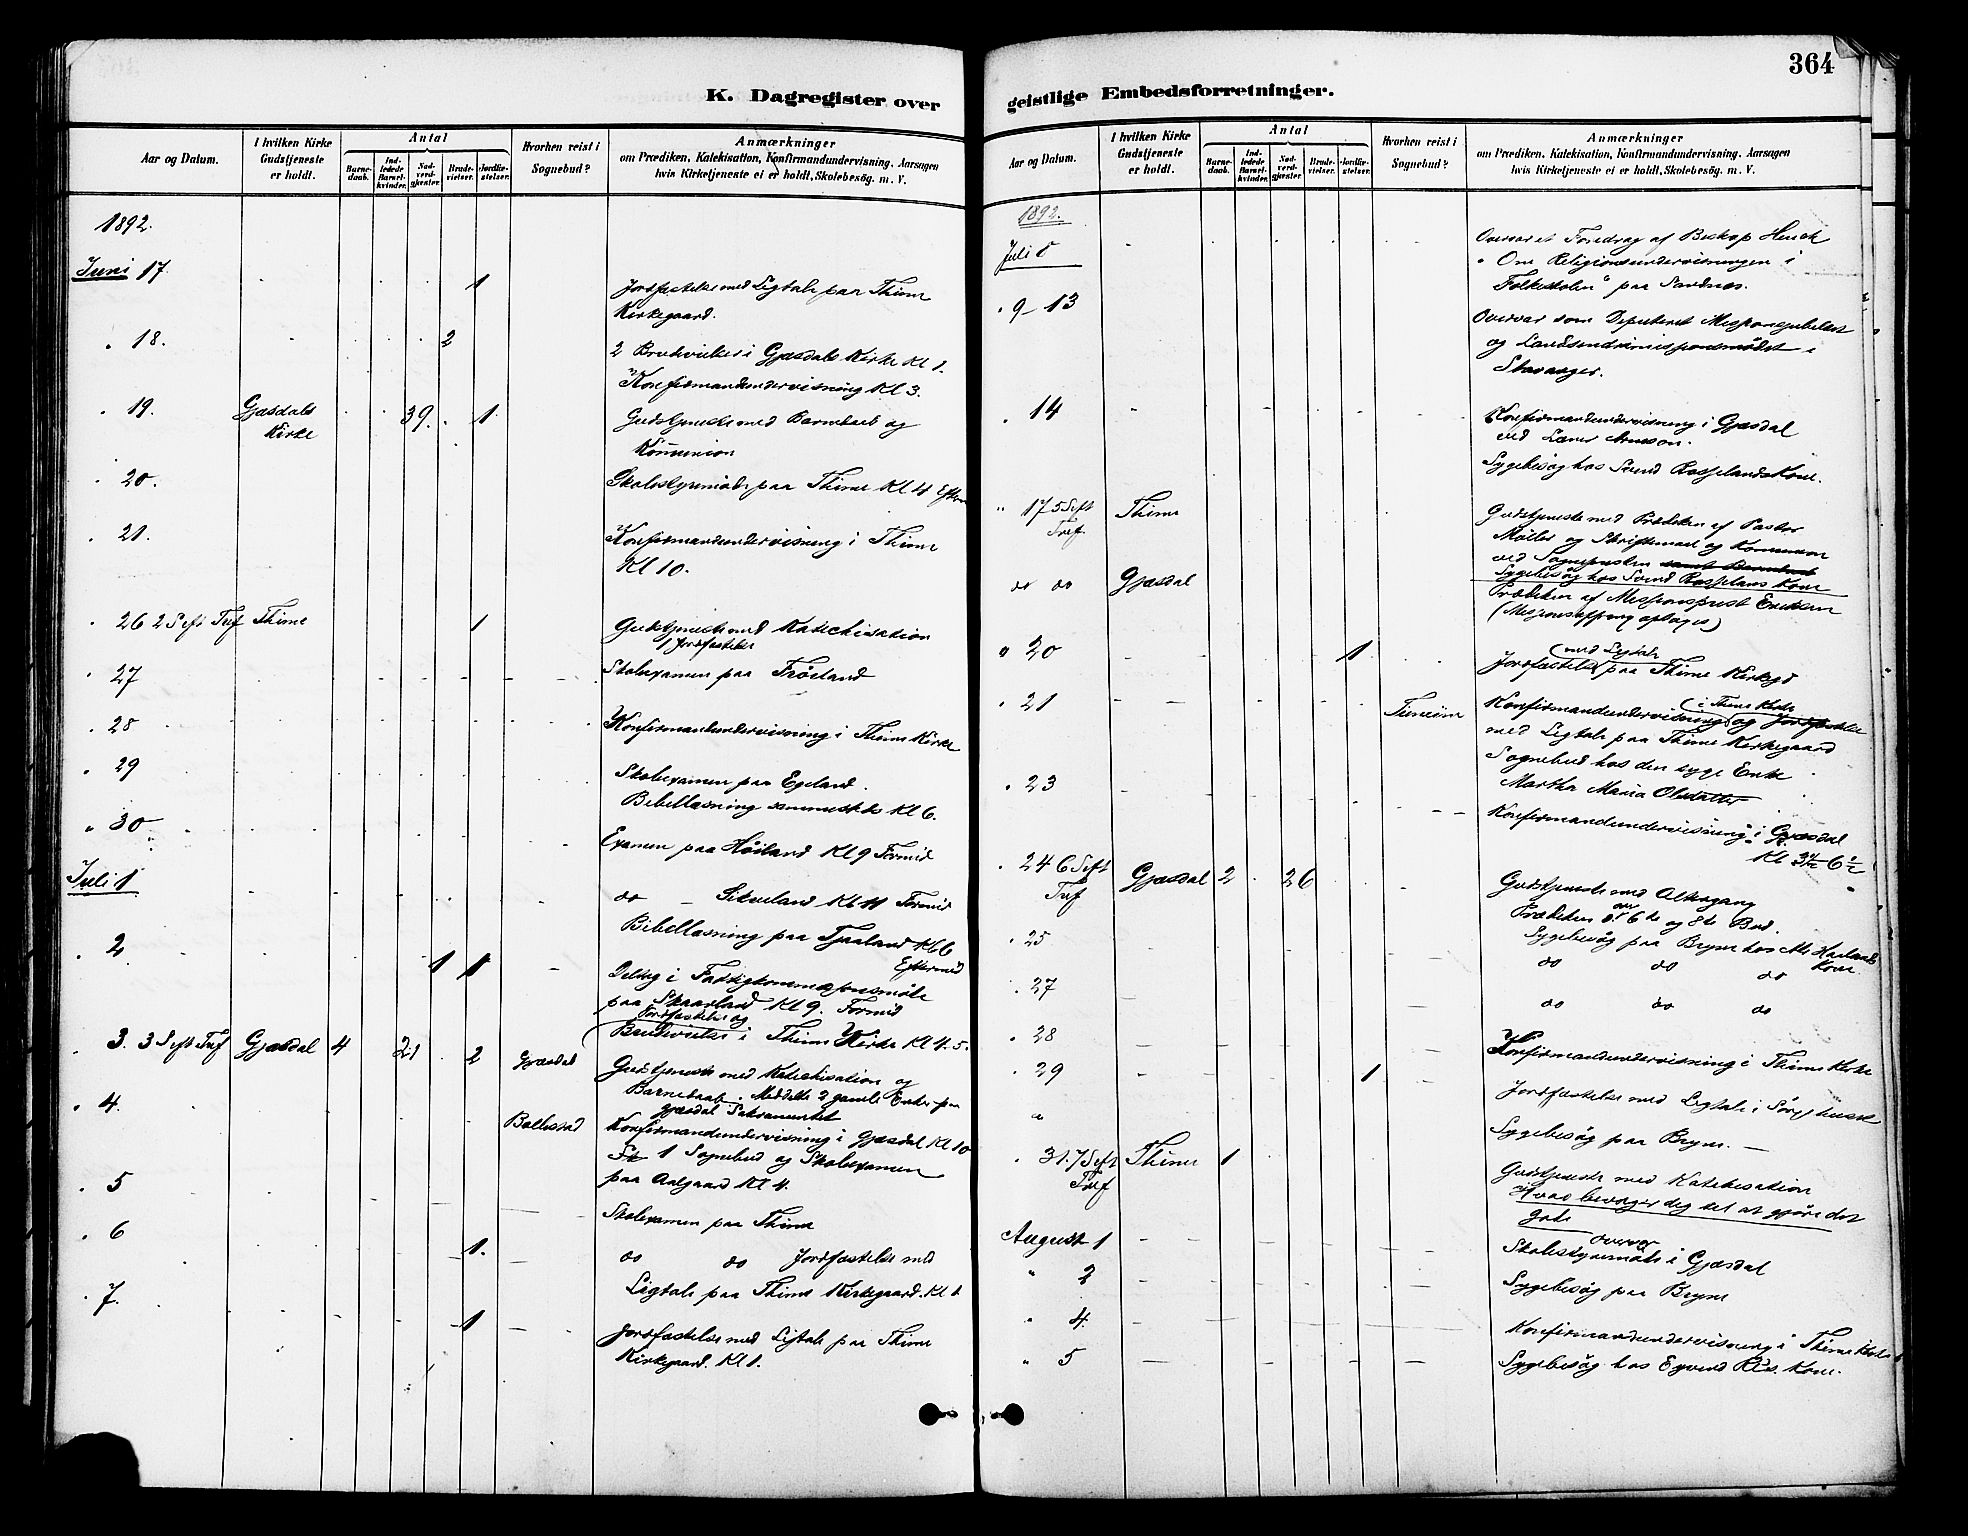 K. Dagregister over
Aar og Datum.
I hvilken Kirke
Gudstjeneste
er holdt.
Antal
Barne-
daab.
Ind-
ledede
Barsel-
kvinder.
Nad-
verd-
gjæster.
Brude-
vielser.
Jordfæ-
stelser.
Hvorhen reist i
Sognebud?
Anmærkninger
om Prædiken, Katekisation, Konfirmandundervisning, Aarsagen
hvis Kirketjeneste ei er holdt, Skolebesøg. m. V.
1892.
Juni 17. 1 Jordfæstelse med Ligtale paa Thime
Kirkegaard.
" 18. 2 2 Brudevielser i Gjæsdals Kirke Kl 1.
Konfirmandundervisning Kl 3.
" 19. Gjæsdals 39. 1. Gudstjeneste med Barnedaab og
Kirke Kommunion
" 20. Skolestyremøde paa Thime Kl 4 Efterm
" 21. Konfirmandundervisning i Thime
Kl 10.
" 26 2 S eft Tref Thime 1 Gudstjeneste med Katechisation
1 Jordfæstelse
" 27 Skolexamen paa Frøiland
" 28 Konfirmandundervisning i Thime Kirke
" 29 Skolexamen paa Egeland.
Bibellæsning sammesteds Kl 6.
" 30 Examen paa Høiland Kl 9 Formid
Juli 1 do - Sikveland Kl 11 Formid
Bibellæsning paa Tjaaland Kl 6
Eftermid
" 2 1 1 Deltog i Fattigkommissionsmøde
paa Skaarland Kl 9. Formid
Jordfæstelse og
Brudevielse i Thime Kirke Kl 4. 5.
" 3. 3 S eft Tref Gjæsdal 4 21 2 Gjæsdal Gudstjeneste med Katechisation og
Barnedaab. Meddelte 2 gamle Enker paa
Gjæsdal Sakramentet
" 4. Bollestad Konfirmandundervisning i Gjæsdal Kl 10
1 Sognebud og Skolexamen
paa Aalgaard Kl 4.
" 5 Skolexamen paa Thime
" 6 1. do do Jordfæstelse med
Ligtale paa Thime Kirkegaard. Kl 1
" 7. 1 Jordfæstelse med Ligtale paa Thime
Kirkegaard. Kl 1.
364
geistlige Embedsforretninger.
Aar og Datum.
I hvilken Kirke
Gudstjeneste
er holdt.
Antal
Barne-
daab.
Ind-
ledede
Barsel-
kvinder.
Nad-
verd-
gjæster.
Brude-
vielser.
Jordfæ-
stelser.
Hvorhen reist i
Sognebud?
Anmærkninger
om Prædiken, Katekisation, Konfirmandundervisning, Aarsagen
hvis Kirketjeneste ei er holdt, Skolebesøg. m. V.
1892.
Juli 8 Overvar et Foredrag af Biskop Heuch
" Om Religionsundervisningen i
Folkeskolen" paa Sandnæs.
" 9-13 Overvar som Deputeret Missionsjubelfest
og Landsindremissionsmødet i
Stavanger.
" 14 Konfirmandundervisning i Gjæsdal
ved Lærer
Sygebesøg hos Svend Kone.
" 17 5 S eft Thime Gudstjeneste med Prædiken af Pastor
Tref. Møller og Skriftemaal og Kommunion
ved Sognepresten samt Barnedaab
Sygebesøg hos Svend Kone
do do Gjæsdal Prædiken af Missionsprest Eriksen
(Missionsoffring optoges)
" 20 1 Jordfæstelse med Ligtale paa Thime Kirkegd
" 21 Tunheim Konfirmandundervisning i Thime Kirke og Jordfæstelse
med Ligtale paa Thime Kirkegaard
Sognebud hos den syge Enke
Martha Maria Olsdatter
" 23 Konfirmandundervisning i Gjæsdal
Kl 6½
" 24 6 S eft Gjæsdal 2 26 Gudstjeneste med Altergang
Tref Prædiken over 6te og 8de Bud.
" 25 Sygebesøg paa Bryne hos Haalands
Kone.
" 27 do do do
do do do
" 28 Konfirmandundervisning i Thime Kirke
" 29 1 Jordfæstelse med Ligtale i Sørgehuset
" Sygebesøg paa Bryne. —
" 31. 7 S eft Thime 1 Gudstjeneste med Katekisation
Tref Hvad bevæger dig til at gjøre det
gode
August 1 overvar
Skolestyremøde i Gjæsdal
" 2 Sygebesøg paa Bryne
" 4. Konfirmandundervisning i Thime Kirke
" 5 Sygebesøg hos Eyvind Kone.